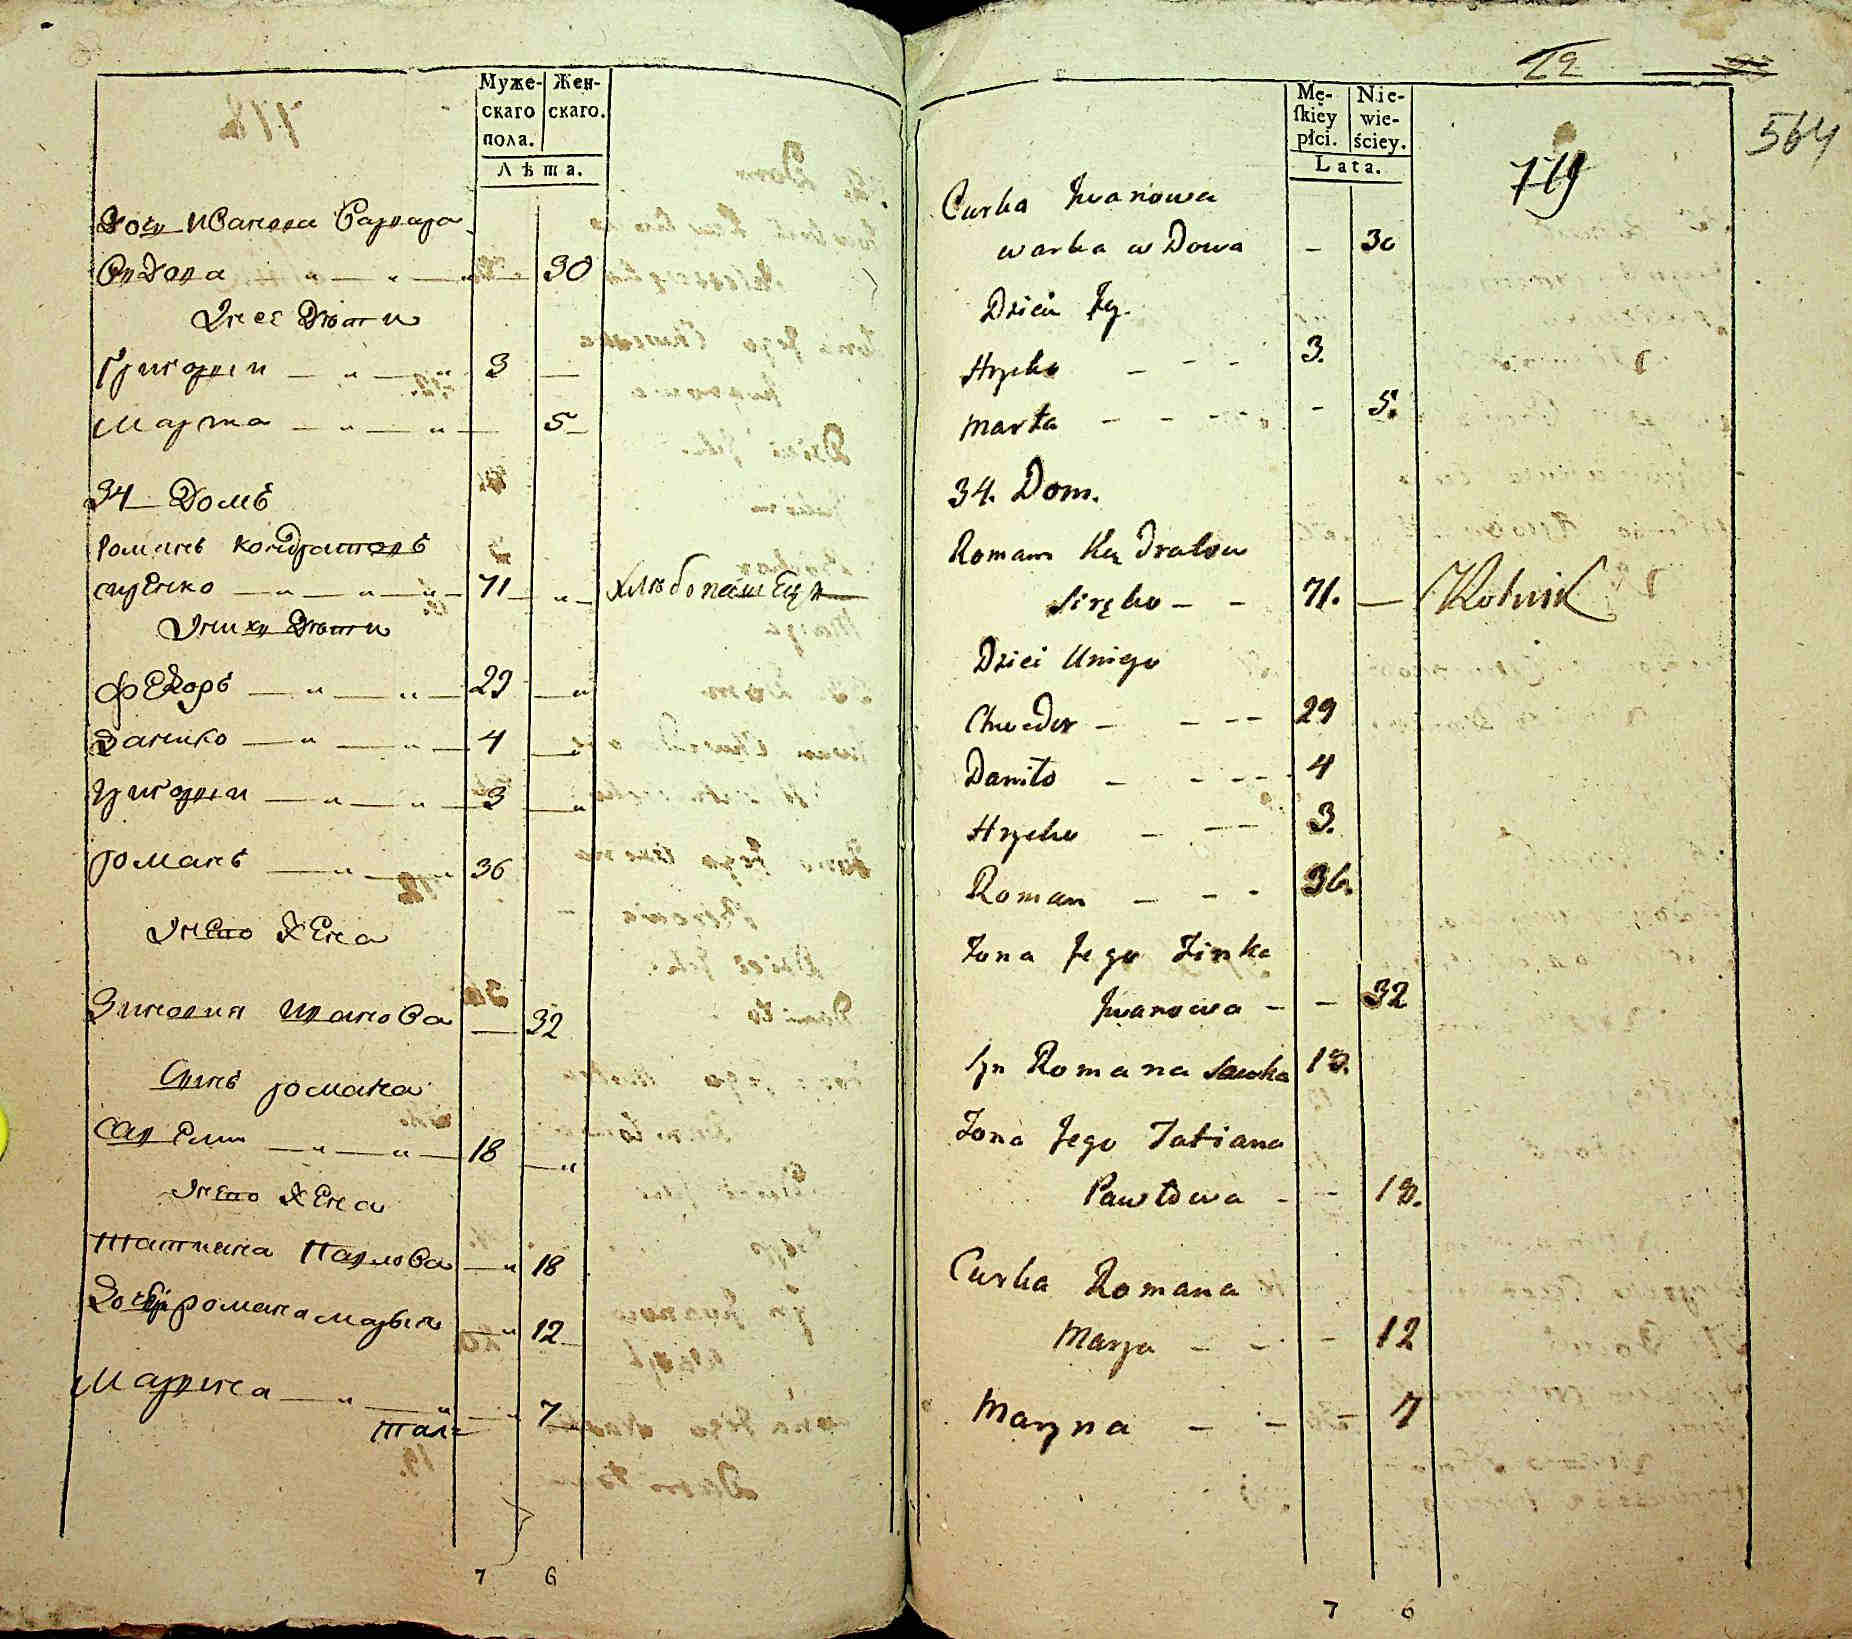 Муже-
скаго
пола.
Жен-
скаго.
Лѣта.
Дочь Иванова Варвара
Вдова 30
Унее Дѣти
Григорей 3
Марта 5
34 Домъ
Романъ Кондратовъ
сиренко 71 хлѣбопашецъ
Унихъ Дѣти
Федоръ 29
Данило 4
Григорей 3
Романъ 36
Унево Жена
Зиновия Иванова 32
Сынъ романа
Савелий 18
Унево Жена
Татиана Павлова 18
Дочь романа марья 12
Марина 7
7 6
22
564
719
Mę-
ſkiey
płci.
Nie-
wie-
ściey.
Lata.
Curka Jwanowa
warka wDowa - 30
Dzieci Jey.
Hryćko - - - 3.
Marta - - - - - 5.
34. Dom.
Roman Kądratow
Siręko - - 71. - Rolnik
Dzieci Uniego
Chwedor - - - - 29
Daniło - - - - 4
Hryćko - - - - 3.
Roman - - - 36.
Żona Jego Zinka
Jwanowa - - 32
Syn Romana Sawka 18.
Żona Jego Tatiana
Pawłowa - - 18.
Curka Romana
Marya - - - 12
Maryna - - - 7
7 6